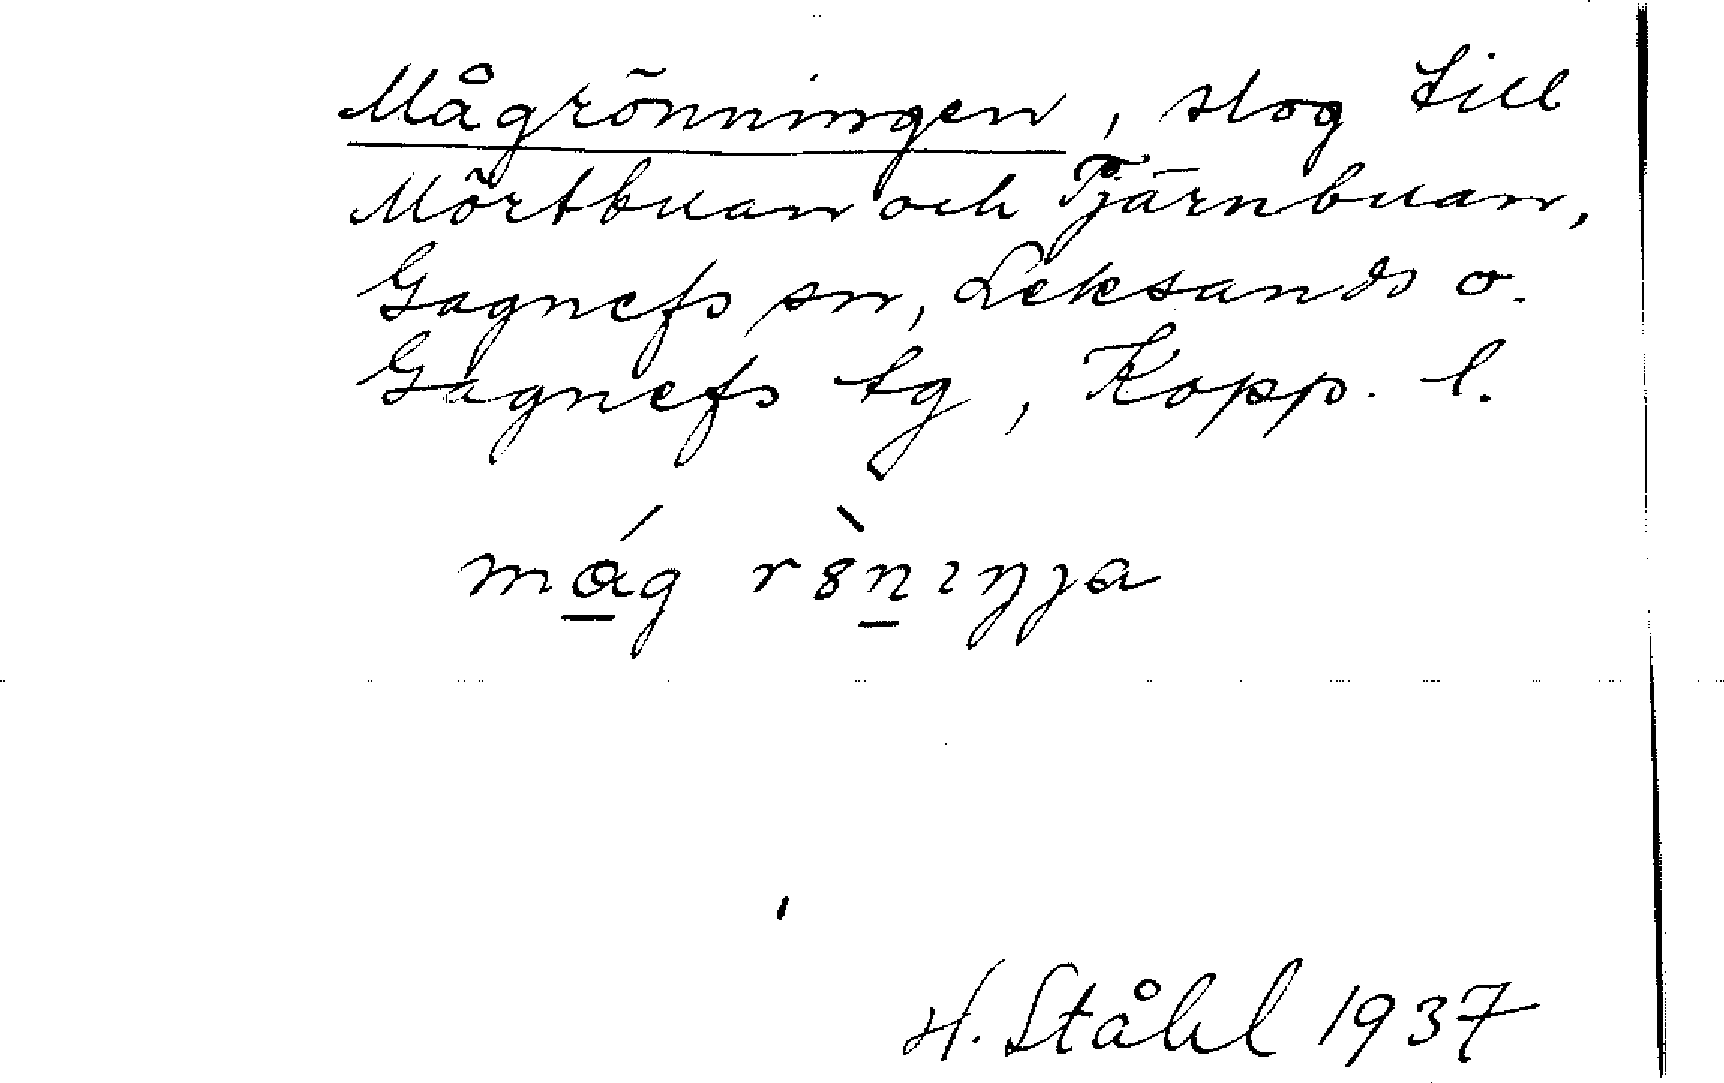 Mågrönningen, slog till
Mörtbuan och Tjärnbuan,
Gagnefs sn, Leksands o.
Gagnefs tg, Kopp. l.
mág rȣ̀nıŋɟa
H. Ståhl 1937